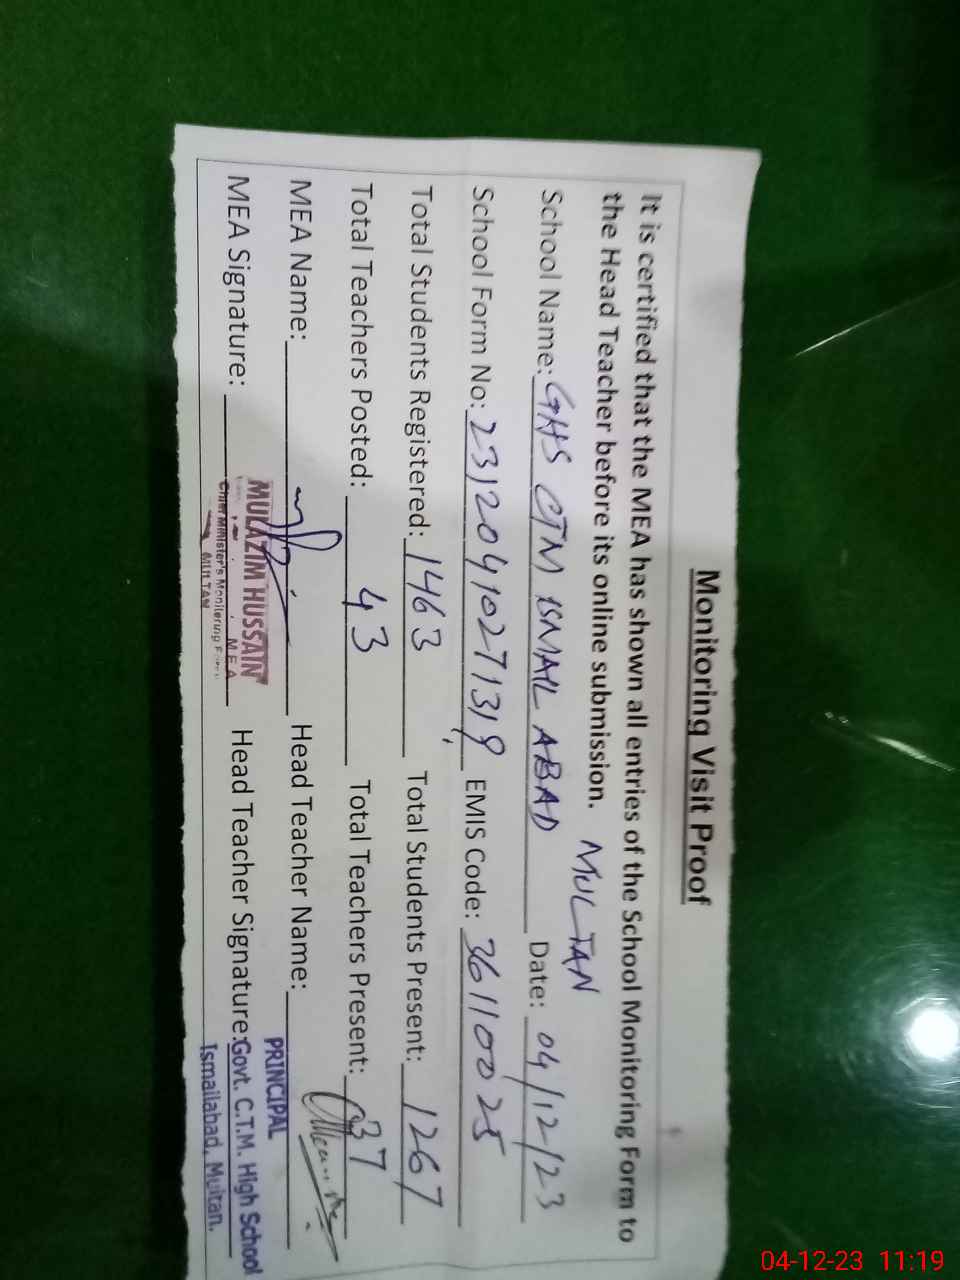 Monitoring Visit Proof
It is certified that the MEA has shown all entries of the School Monitoring Form to
the Head Teacher before its online submission. MULTAN
School Name: GHS CTM ISMAIL ABAD Date: 04/12/23
School Form No: 23120410271319 EMIS Code: 36110025
Total Students Registered: 1463 Total Students Present: 1267
Total Teachers Posted: 43 Total Teachers Present: 37
MEA Name: Head Teacher Name:
MULAZIM HUSSAIN
M E A
Chief Minister's Monitoring Force
MULTAN
MEA Signature: Head Teacher Signature:
PRINCIPAL
Govt. C.T.M. High School
Ismailabad, Multan.
04-12-23 11:19